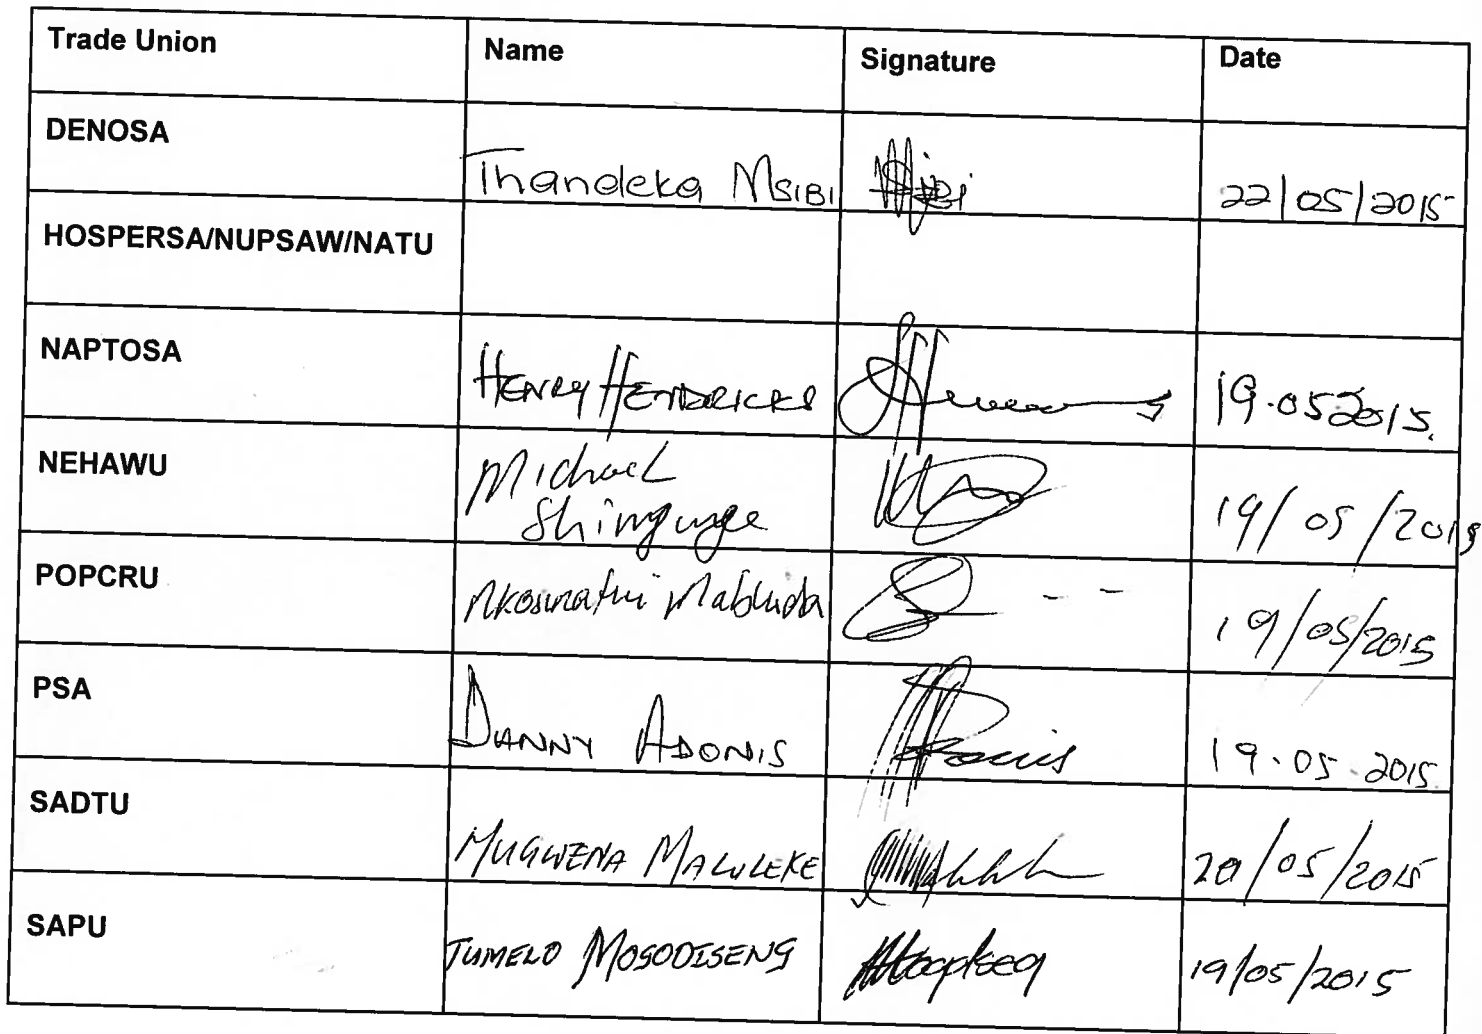 Trade Union Name Signature Date
DENOSA
Thandeka MSIBI 22/05/2015
HOSPERSA/NUPSAW/NATU
NAPTOSA
HENRY HENDRICKS 19.05 2015.
NEHAWU
Michael
Shingange 19/05/2015
POPCRU
Nkosinathi Mabhida 19/05/2015
PSA
DANNY ADONIS 19.05.2015
SADTU
MUGWENA MALULEKE 20/05/2015
SAPU
TUMELO MOGODISENG 19/05/2015